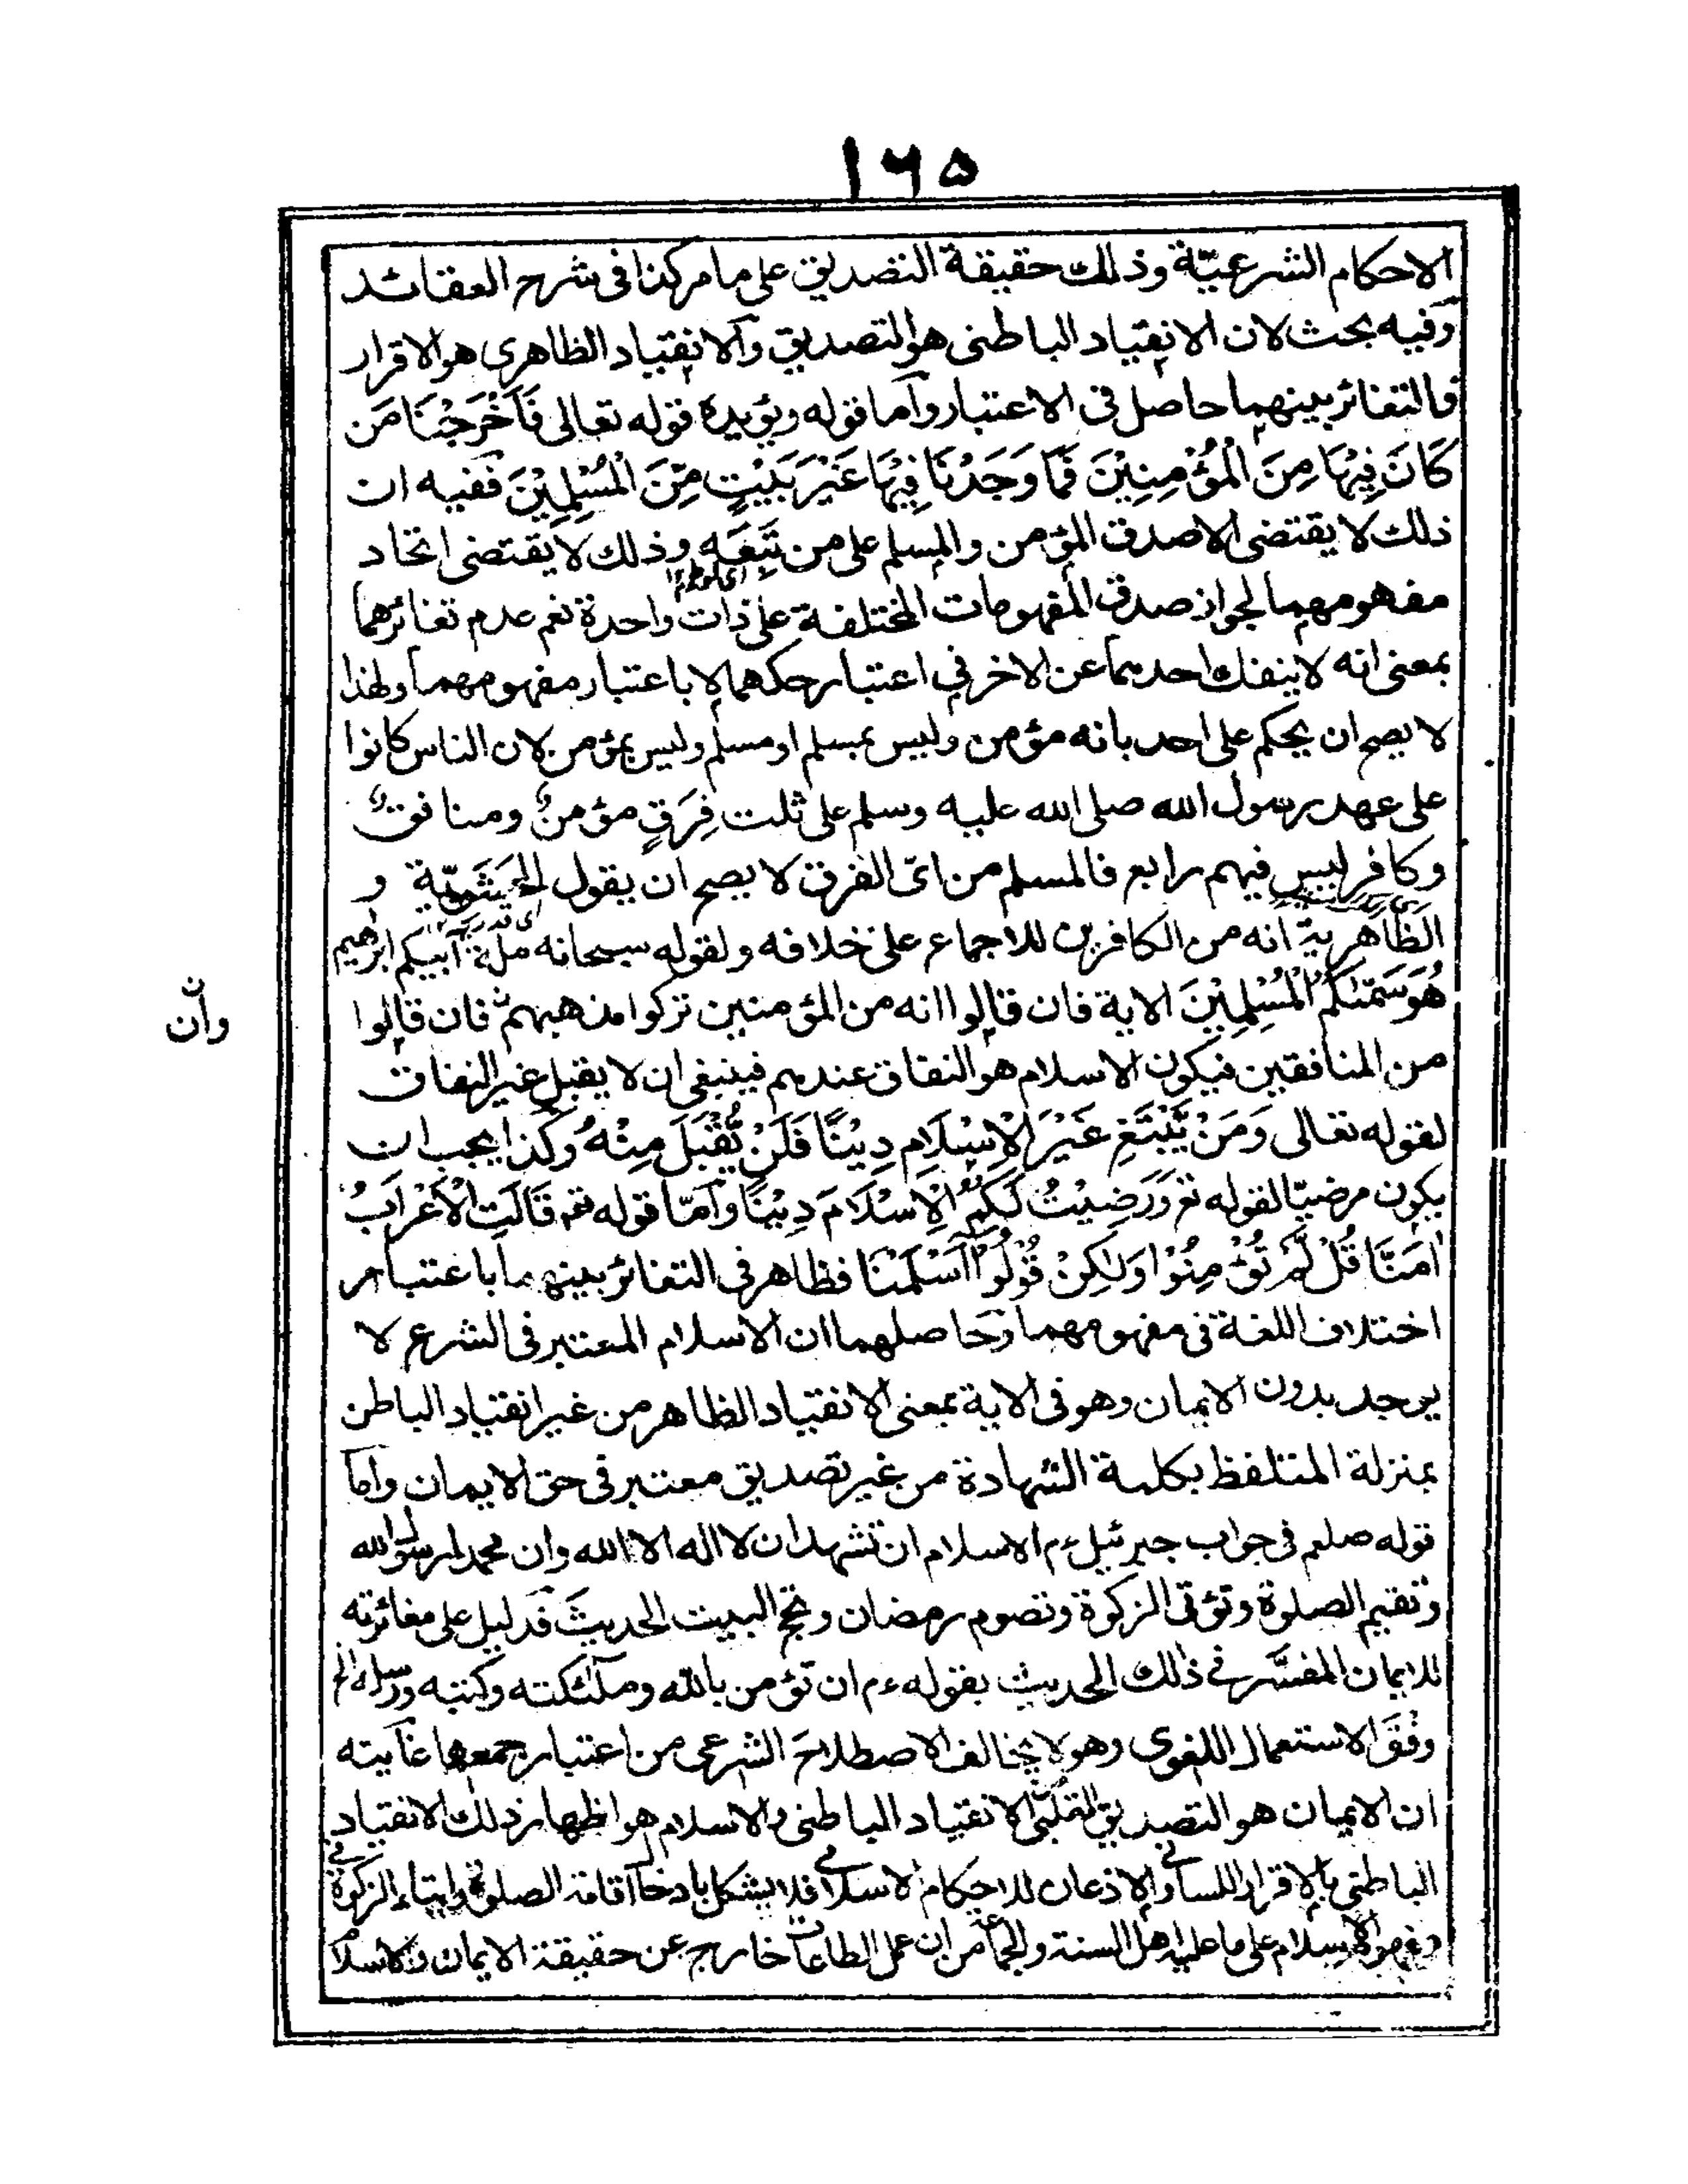 ١٦٥
الاحكام الشرعيّة وذلك حقيقة التصديق على ما مر كذا فى شرح العقائد
وفيه بحث لان الانقياد الباطنى هو التصديق والانقياد الظاهرى هو الاقرار
فالتغائر بينهما حاصل فى الاعتبار واما قوله ويؤيده قوله تعالى فَاَخْرَجْنَا مَن
كَانَ فِيْهَا مِنَ الْمُؤْمِنِيْنَ فَمَا وَجَدْنَا فِيْهَا غَيْرَ بَيْتٍ مِّنَ الْمُسْلِمِيْنَ ففيه ان
ذلك لا يقتضى الا صدق المؤمن والمسلم على من تَبِعَه وذلك لا يقتضى اتحاد
مفهومهما لجواز صدق المفهومات المختلفة على ذات واحدة نعم عدم تغائرهما
بمعنى انه لا ينفك احدهما عن الاخر فى اعتبار حكمهما لا باعتبار مفهومهما ولهذا
لا يصح ان يحكم على احد بانه مؤمن وليس بمسلم او مسلم وليس بمؤمن لان الناس كانوا
على عهد رسول الله صلى الله عليه وسلم على ثلث فِرَقٍ مؤمنٌ ومنافقٌ
وكافر ليس فيهم رابع فالمسلم من اىّ الفرق لا يصح ان يقول الحشويّة و
الظاهرية انه من الكافرين للاجماع على خلافه ولقوله سبحانه ملّة ابيكم ابرهيم
هُوَ سَمّٰىكُمُ الْمُسْلِمِيْنَ الاية فان قالوا انه من المؤمنين تركوا مذهبهم فان قالوا
وان
من المنافقين فيكون الاسلام هو النفاق عندهم فينبغى ان لا يقبل غير النفاق
لقوله تعالى وَمَنْ يَّبْتَغِ غَيْرَ الْاِسْلَامِ دِيْنًا فَلَنْ يُّقْبَلَ مِنْهُ وكذا يجب ان
يكون مرضيّا لقوله تع وَرَضِيْتُ لَكُمُ الْاِسْلَامَ دِيْنًا وامّا قوله تع قَالَتِ الْاَعْرَابُ
اٰمَنَّا قُلْ لَّمْ تُؤْمِنُوْا وَلٰكِنْ قُوْلُوْا اَسْلَمْنَا فظاهر فى التغائر بينهما باعتبار
اختلاف اللغة فى مفهومهما وحاصلهما ان الاسلام المعتبر فى الشرع لا
يوجد بدون الايمان وهو فى الاية بمعنى الانقياد الظاهر من غير انقياد الباطن
بمنزلة المتلفظ بكلمة الشهادة من غير تصديق معتبر فى حق الايمان واما
قوله صلعم فى جواب جبرئيل ءم الاسلام ان تشهد ان لا اله الا الله وان محمدا رسول الله
وتقيم الصلوة وتؤتى الزكوة وتصوم رمضان وتحج البيت الحديث فدليل على مغائرته
للايمان المفسّر فى ذلك الحديث بقوله ءم ان تؤمن بالله وملئكته وكتبه ورسله الخ
وفْقَ الاستعمال اللغوى وهو لا يخالف الاصطلاحَ الشرعى من اعتبار جمعهما غايته
ان الايمان هو التصديق القلبى الانقياد الباطنى والاسلام هو اظهار ذلك الانقياد
الباطنى بالاقرار اللسانى والاذعان للاحكام الاسلامى فلا يشكل بادخال اقامة الصلوة وايتاء الزكوة فى
الاسلام على ما عليه اهل السنة والجماعة من ان عمل الطاعات خارج عن حقيقة الايمان والاسلام